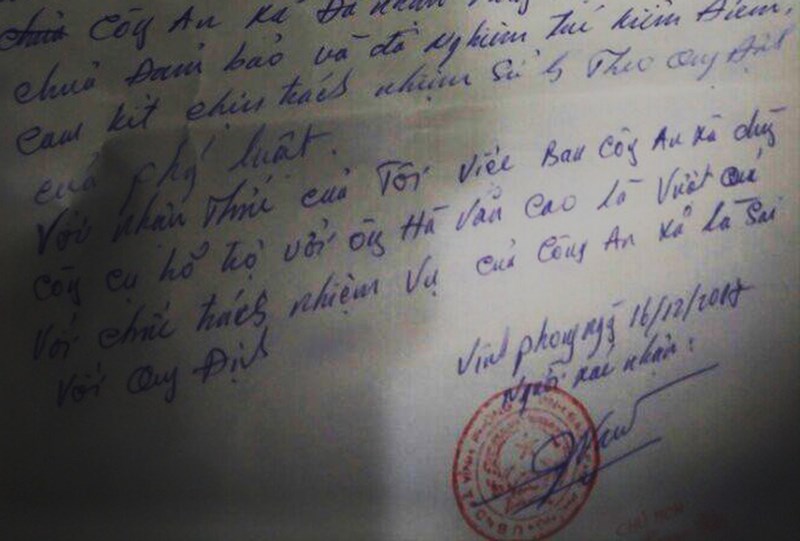 Công An xã Đã nhận
chưa Đảm bảo và đã nghiêm túc kiểm Điểm,
cam kết chịu trách nhiệm Theo Quy Định
của luật.
Với nhận Thức của Tôi việc Ban Công An xã dùng
công cụ hổ trợ với ông Hà Văn Cao là Vượt quá
với chức trách nhiệm Vụ của Công An xã là Sai
với Quy Định
Vĩnh phong ngày 16/12/2017
Người xác nhận: